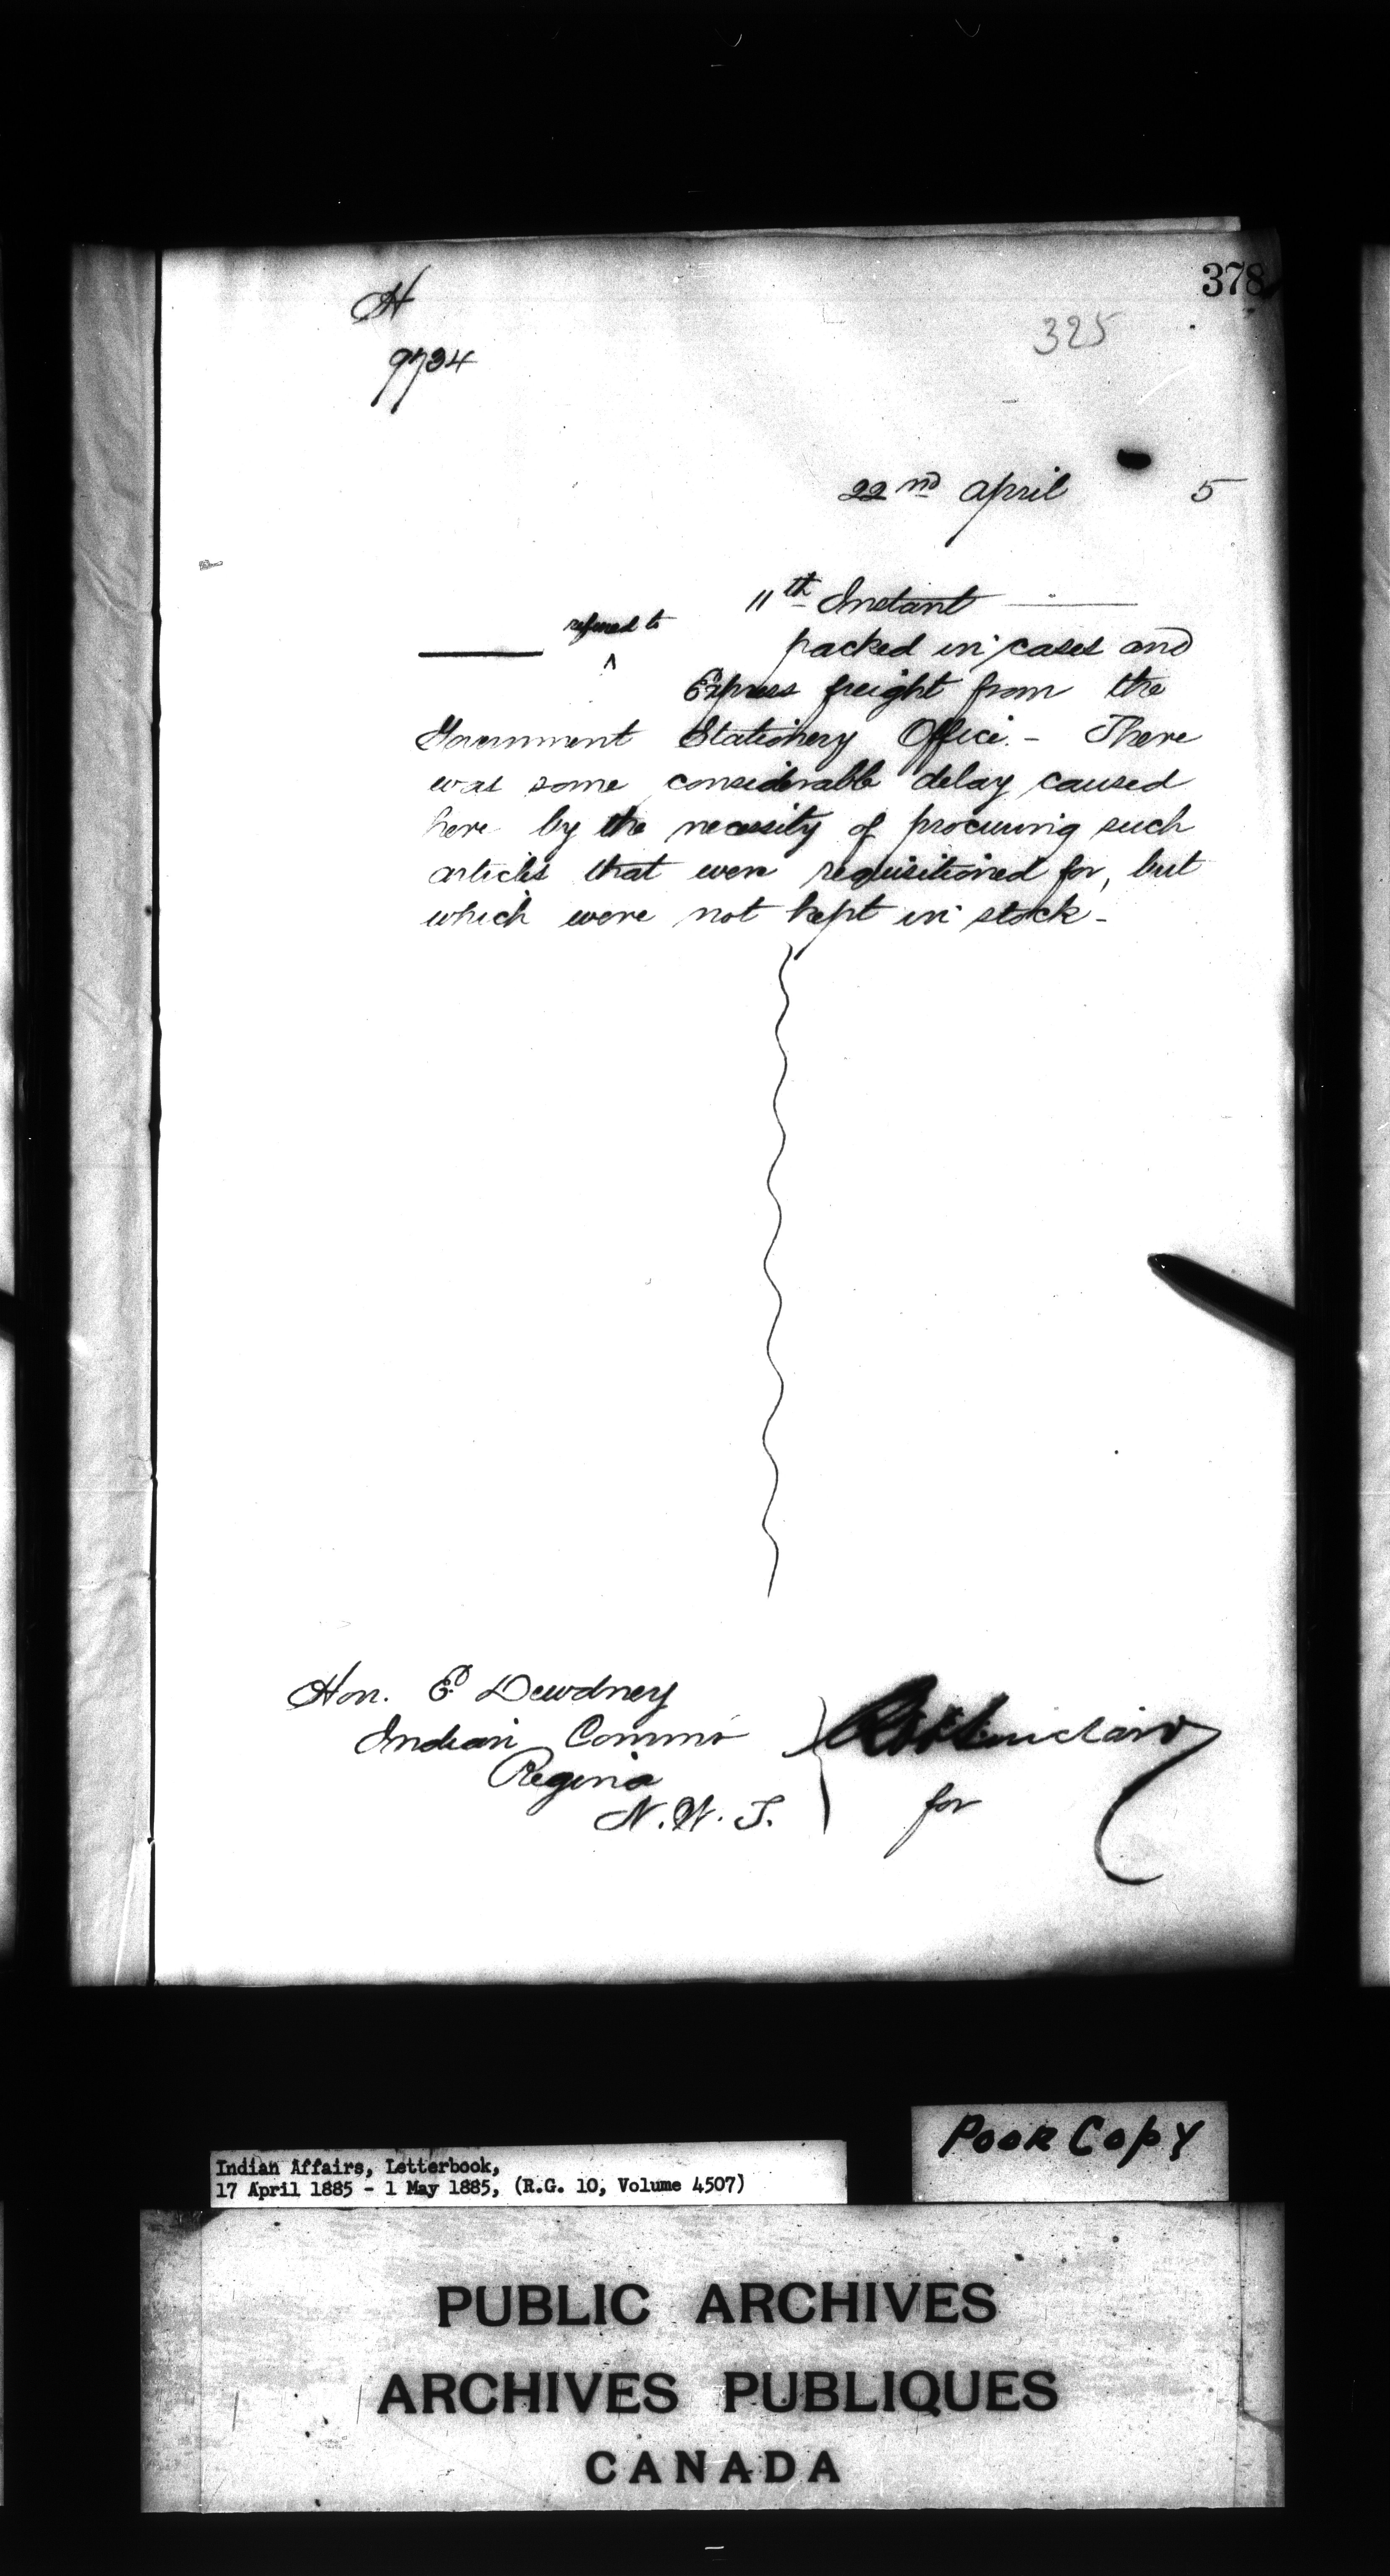 378
H
325
9734
22nd April 5
11th Instant
referred to
packed in cases and
Express freight from the
Government Stationery Office. - There
was some considerable delay caused
here by the necessity of procuring such
articles that were requisitioned for, but
which were not kept in stock -
Hon. E Dewdney
Indian Commr
Regina
N. W. T.
for
Poor Copy
Indian Affairs, Letterbook,
17 April 1885 - 1 May 1885, (R.G. 10, Volume 4507)
PUBLIC ARCHIVES
ARCHIVES PUBLIQUES
CANADA